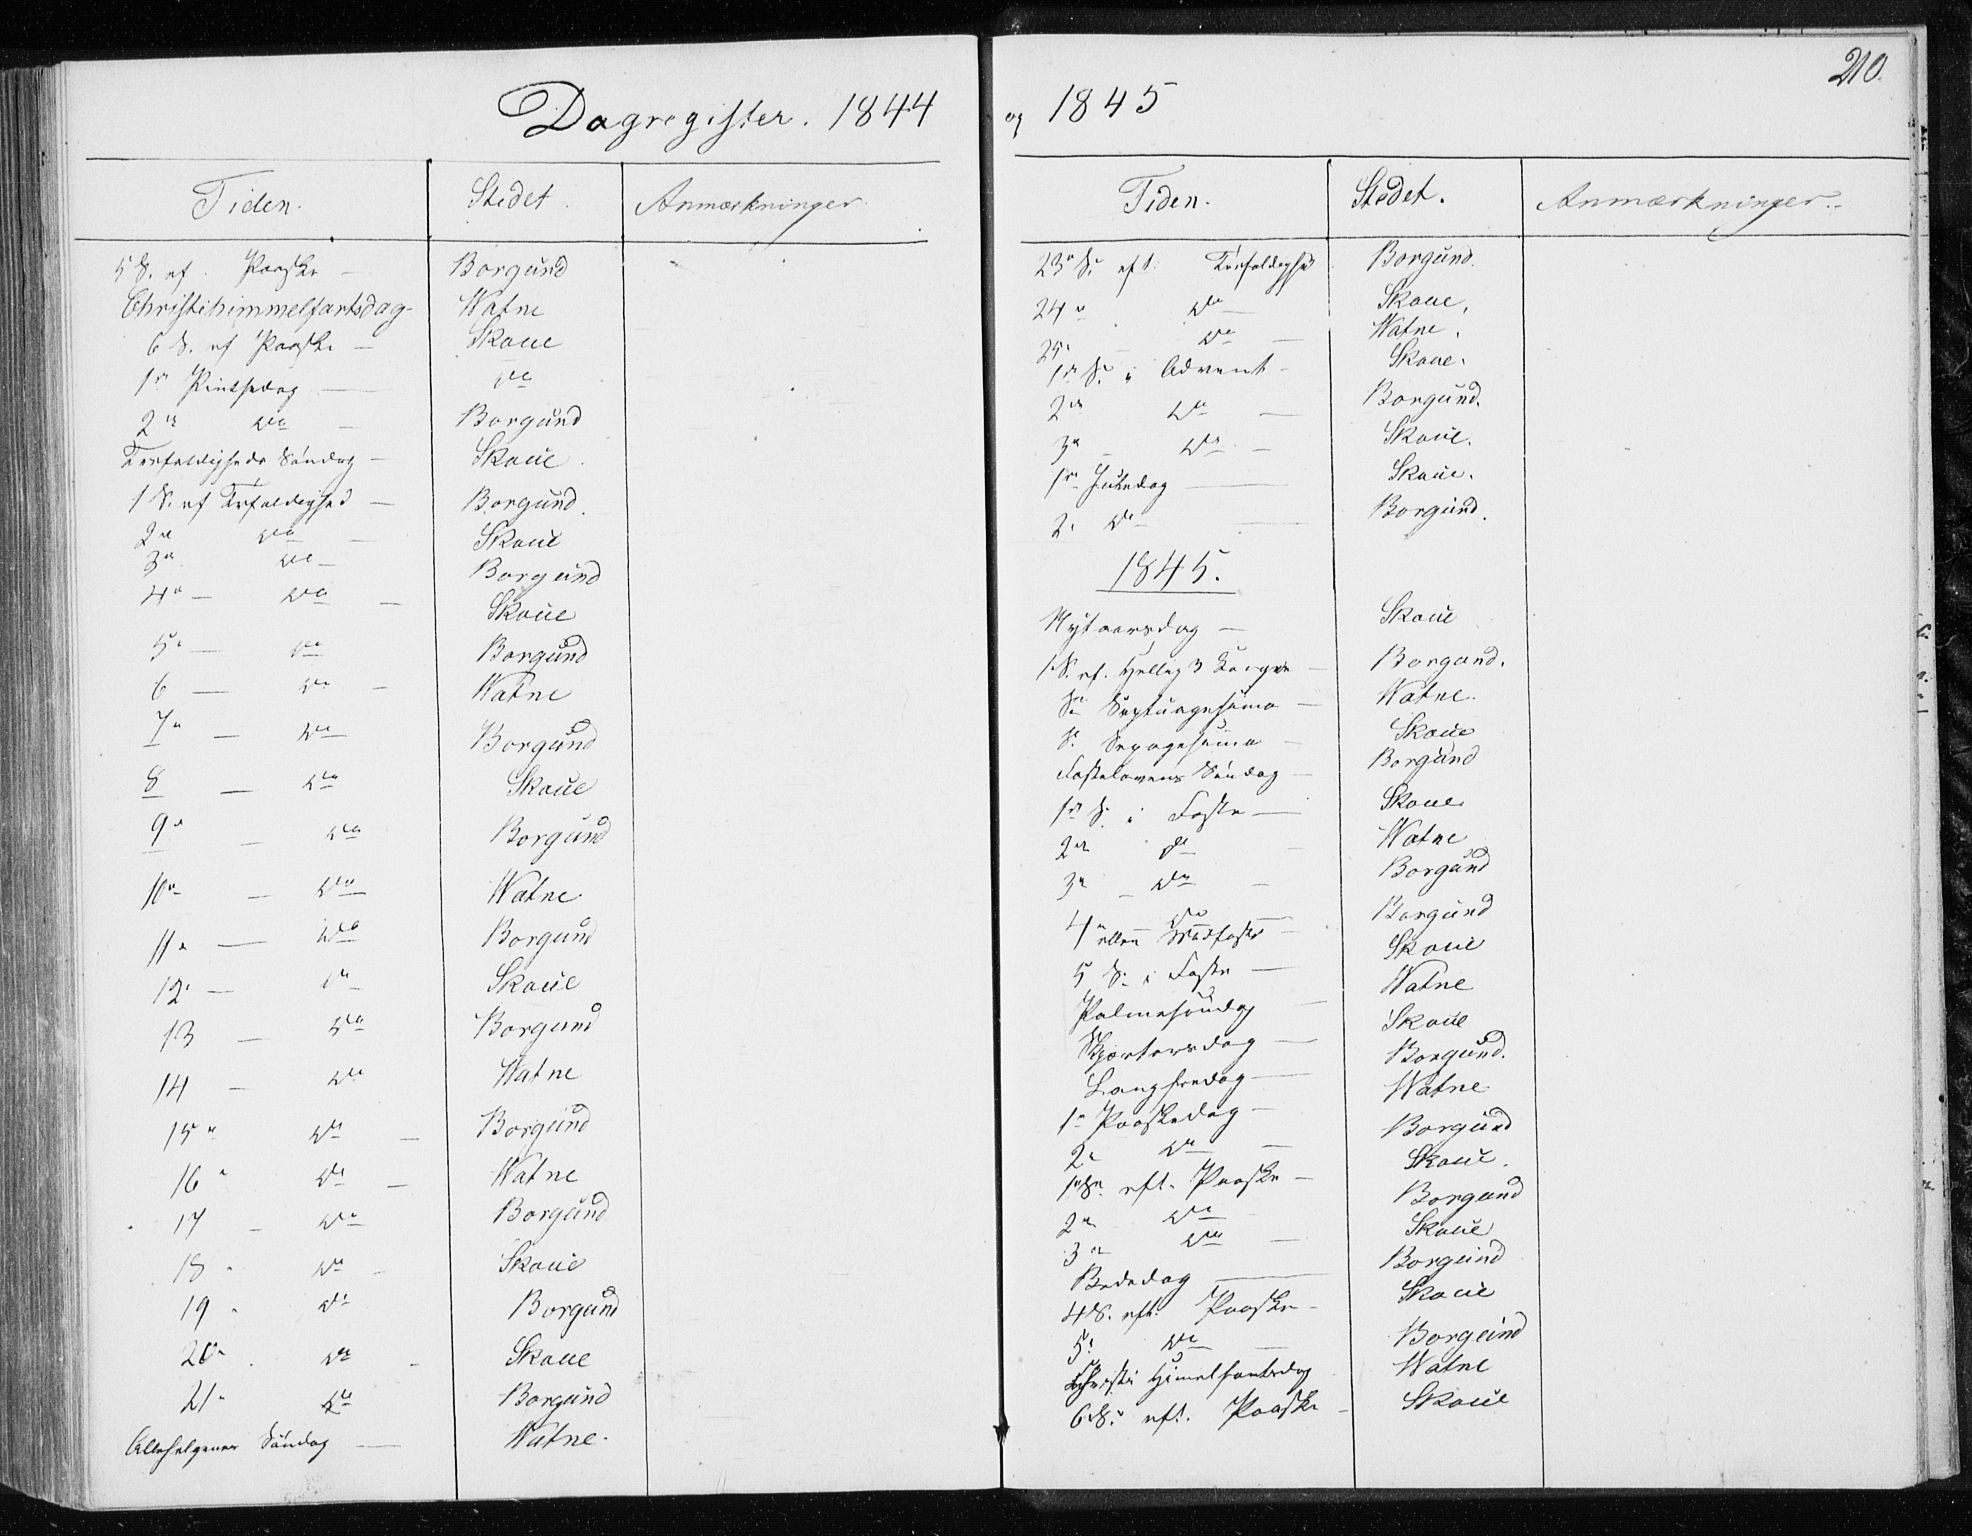 Dagregister. 1844
Tiden. Stedet. Anmærkninger.
5 S. ef. Paaske — Borgund
Christihimmelfartsdag Watne
6 S. ef Paaske — Skoue
1n Pintsedag — do
2n do — Borgund
Trefoldigheds Søndag — Skoue
1 S. ef Trefoldighed — Borgund.
2n do — Skoue
3n do — Borgund
4n — do — Skoue
5n — do Borgund
6 — do — Watne
7n — do Borgund
8 — do Skoue
9n — do Borgund
10n — do Watne
11n — do Borgund
12n — do Skoue
13 — do Borgund
14 — do Watne
15n do — Borgund
16n do — Watne
17 — do Borgund
18n do — Skoue
19n do Borgund
20n do — Skoue
21n do Borgund
Allehelgenes Søndag — Watne.
og 1845
210.
Tiden. Stedet. Anmærkninger.
23n S. eft. Trefoldighed Borgund.
24n do — Skoue.
25n — do — Watne.
1n S. i Advent — Skoue.
2n do — Borgund.
3n — do — Skoue.
1n Juledag — Skoue.
2n do — Borgund.
1845.
Nytaarsdag — Skoue
1 S. ef. Hellig 3 Konger — Borgund.
S. Septuagesima — Watne.
S. Sexagesima — Skoue
Fastelavens Søndag — Borgund
1n S. i Faste — Skoue
2n do — Watne
3n — do — Borgund
4n do — Borgund
eller Midfaste
5 S. i Faste — Skoue
Palmesøndag — Watne
Skjærtorsdag — Skoue
Langfredag — Borgund.
1n Paaskedag — Watne
2n do — Borgund
1n S. eft. Paaske — Skoue.
2n do — Borgund
3n do — Skoue
Bededag — Borgund
4 S. eft. Paaske — Skoue
5n do — Borgund
Christi Himelfartsdag Watne
6 S. eft. Paaske — Skoue